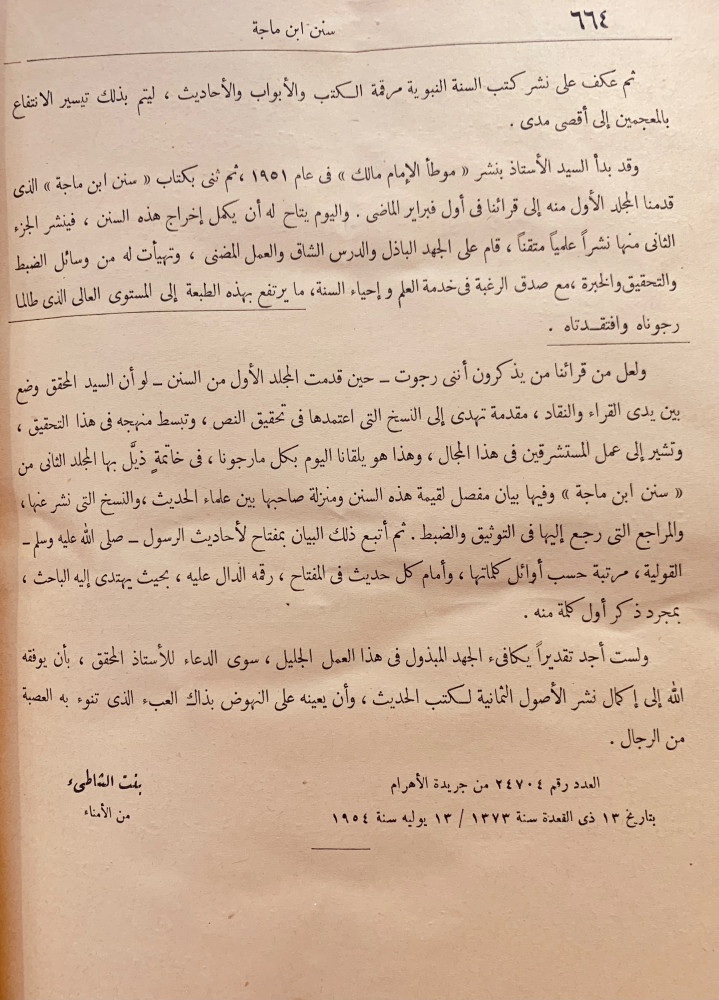 ٦٦٤
سنن ابن ماجة
ثم عكف على نشر كتب السنة النبوية مرقمة الكتب والأبواب والأحاديث ، ليتم بذلك تيسير الانتفاع
بالمعجمين إلى أقصى مدى .
وقد بدأ السيد الأستاذ بنشر « موطأ الإمام مالك » فى عام ١٩٥١ ، ثم ثنى بكتاب « سنن ابن ماجة » الذى
قدمنا المجلد الأول منه إلى قرائنا فى أول فبراير الماضى . واليوم يتاح له أن يكمل إخراج هذه السنن ، فينشر الجزء
الثانى منها نشراً علمياً متقناً ، قام على الجهد الباذل والدرس الشاق والعمل المضنى ، وتهيأت له من وسائل الضبط
والتحقيق والخبرة ، مع صدق الرغبة فى خدمة العلم وإحياء السنة ، ما يرتفع بهذه الطبعة إلى المستوى العالى الذى طالما
رجوناه وافتقدتاه .
ولعل من قرائنا من يذكرون أننى رجوت – حين قدمت المجلد الأول من السنن – لو أن السيد المحقق وضع
بين يدى القراء والنقاد ، مقدمة تهدى إلى النسخ التى اعتمدها فى تحقيق النص ، وتبسط منهجه فى هذا التحقيق ،
وتشير إلى عمل المستشرقين فى هذا المجال ، وهذا هو يلقانا اليوم بكل مارجونا ، فى خاتمةٍ ذيَّل بها المجلد الثانى من
« سنن ابن ماجة » وفيها بيان مفصل لقيمة هذه السنن ومنزلة صاحبها بين علماء الحديث ، والنسخ التى نشر عنها ،
والمراجع التى رجع إليها فى التوثيق والضبط . ثم أتبع ذلك البيان بمفتاح لأحاديث الرسول – صلى الله عليه وسلم –
القولية ، مرتبة حسب أوائل كلماتها ، وأمام كل حديث فى المفتاح ، رقمه الدال عليه ، بحيث يهتدى إليه الباحث ،
بمجرد ذكر أول كلمة منه .
ولست أجد تقديراً يكافىء الجهد المبذول فى هذا العمل الجليل ، سوى الدعاء للأستاذ المحقق ، بأن يوفقه
الله إلى إكمال نشر الأصول الثمانية لكتب الحديث ، وأن يعينه على النهوض بذاك العبء الذى تنوء به العصبة
من الرجال .
العدد رقم ٢٤٧٠٤ من جريدة الأهرام
بنت الشاطىء
بتاريخ ١٣ ذى القعدة سنة ١٣٧٣ / ١٣ يوليه سنة ١٩٥٤
من الأمناء